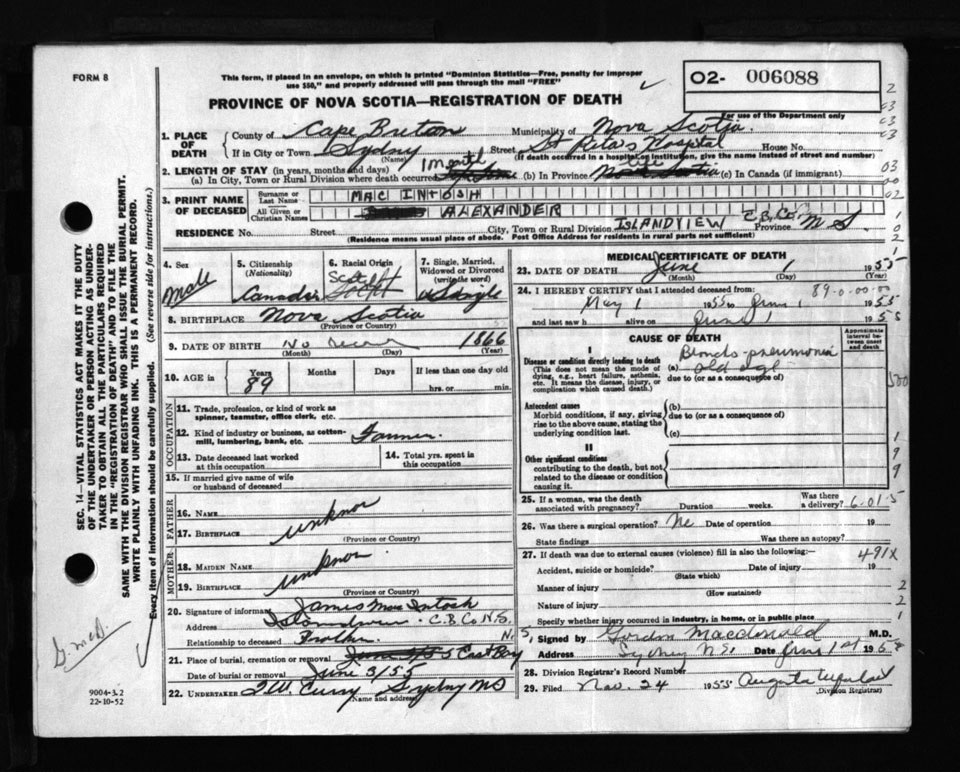 FORM 8
This form, if placed in an envelope, on which is printed "Dominion Statistics—Free, penalty for improper
use $50," and properly addressed will pass through the mail "FREE"
O2- 006088
PROVINCE OF NOVA SCOTIA—REGISTRATION OF DEATH
For use of the Department only
1. PLACE OF DEATH { County of Cape Breton Municipality of Nova Scotia
If in City or Town Sydny Street St Rita's Hospital House No.
(Name) (If death occurred in a hospital or institution, give the name instead of street and number)
2. LENGTH OF STAY (in years, months and days) 1 month
(a) In City, Town or Rural Division where death occurred (b) In Province life Nova Scotia (c) In Canada (if immigrant)
3. PRINT NAME OF DECEASED { Surname or Last Name MAC INTOSH
All Given or Christian Names ALEXANDER
RESIDENCE No. Street City, Town or Rural Division ISLANDVIEW C.B. Co. Province N S.
(Residence means usual place of abode. Post Office Address for residents in rural parts not sufficient)
4. Sex Male
5. Citizenship (Nationality) Canadian
6. Racial Origin Scotch
7. Single, Married, Widowed or Divorced (write the word) Single
8. BIRTHPLACE Nova Scotia
(Province or Country)
9. DATE OF BIRTH No 1866
(Month) (Day) (Year)
10. AGE in { Years 89 Months Days If less than one day old
hrs. or min.
OCCUPATION
11. Trade, profession, or kind of work as
spinner, teamster, office clerk, etc.
12. Kind of industry or business, as cotton-
mill, lumbering, bank, etc. Farmer.
13. Date deceased last worked
at this occupation
14. Total yrs. spent in
this occupation
15. If married give name of wife
or husband of deceased
FATHER
16. Name
17. Birthplace unknor
(Province or Country)
MOTHER
18. Maiden Name
19. Birthplace unknor
(Province or Country)
20. Signature of informant James Mac Intosh
Address C.B. Co N.S.
Relationship to deceased Brother
21. Place of burial, cremation or removal East Bay
Date of burial or removal June 3/55
22. UNDERTAKER T.W. Curry Sydny NS
(Name and address)
MEDICAL CERTIFICATE OF DEATH
23. DATE OF DEATH June 1 1955
(Month) (Day) (Year)
24. I HEREBY CERTIFY that I attended deceased from 89-0-00-00
May 1 1955 to June 1 1955
and last saw h alive on June 1 1955
CAUSE OF DEATH
Approximate
interval be-
tween onset
and death
I
Disease or condition directly leading to death
(This does not mean the mode of
dying, e.g., heart failure, asthenia,
etc. It means the disease, injury, or
complication which caused death.)
(a) Broncho-pneumonia
old age
due to (or as a consequence of)
Antecedent causes
Morbid conditions, if any, giving
rise to the above cause, stating the
underlying condition last.
(b)
due to (or as a consequence of)
(c)
II
Other significant conditions
contributing to the death, but not
related to the disease or condition
causing it.
25. If a woman, was the death
associated with pregnancy? Duration weeks. Was there
a delivery? 6-01-5
26. Was there a surgical operation? No Date of operation 19
State findings Was there an autopsy?
27. If death was due to external causes (violence) fill in also the following:— 491X
Accident, suicide or homicide? Date of injury 19
(State which)
Manner of injury
(How sustained)
Nature of injury
Specify whether injury occurred in industry, in home, or in public place
Signed by Gordon Macdonald M.D.
Address Sydney N.S. Date June 1st 195
28. Division Registrar's Record Number
29. Filed Nov. 24 1955 Augusta
(Division Registrar)
SEC. 14—VITAL STATISTICS ACT MAKES IT THE DUTY
OF THE UNDERTAKER OR PERSON ACTING AS UNDER-
TAKER TO OBTAIN ALL THE PARTICULARS REQUIRED
IN THE "REGISTRATION OF DEATH" AND TO FILE THE
SAME WITH THE DIVISION REGISTRAR WHO SHALL ISSUE THE BURIAL PERMIT.
WRITE PLAINLY WITH UNFADING INK. THIS IS A PERMANENT RECORD.
Every item of information should be carefully supplied. (See reverse side for instructions.)
G. McD.
9004-3.2
22-10-52